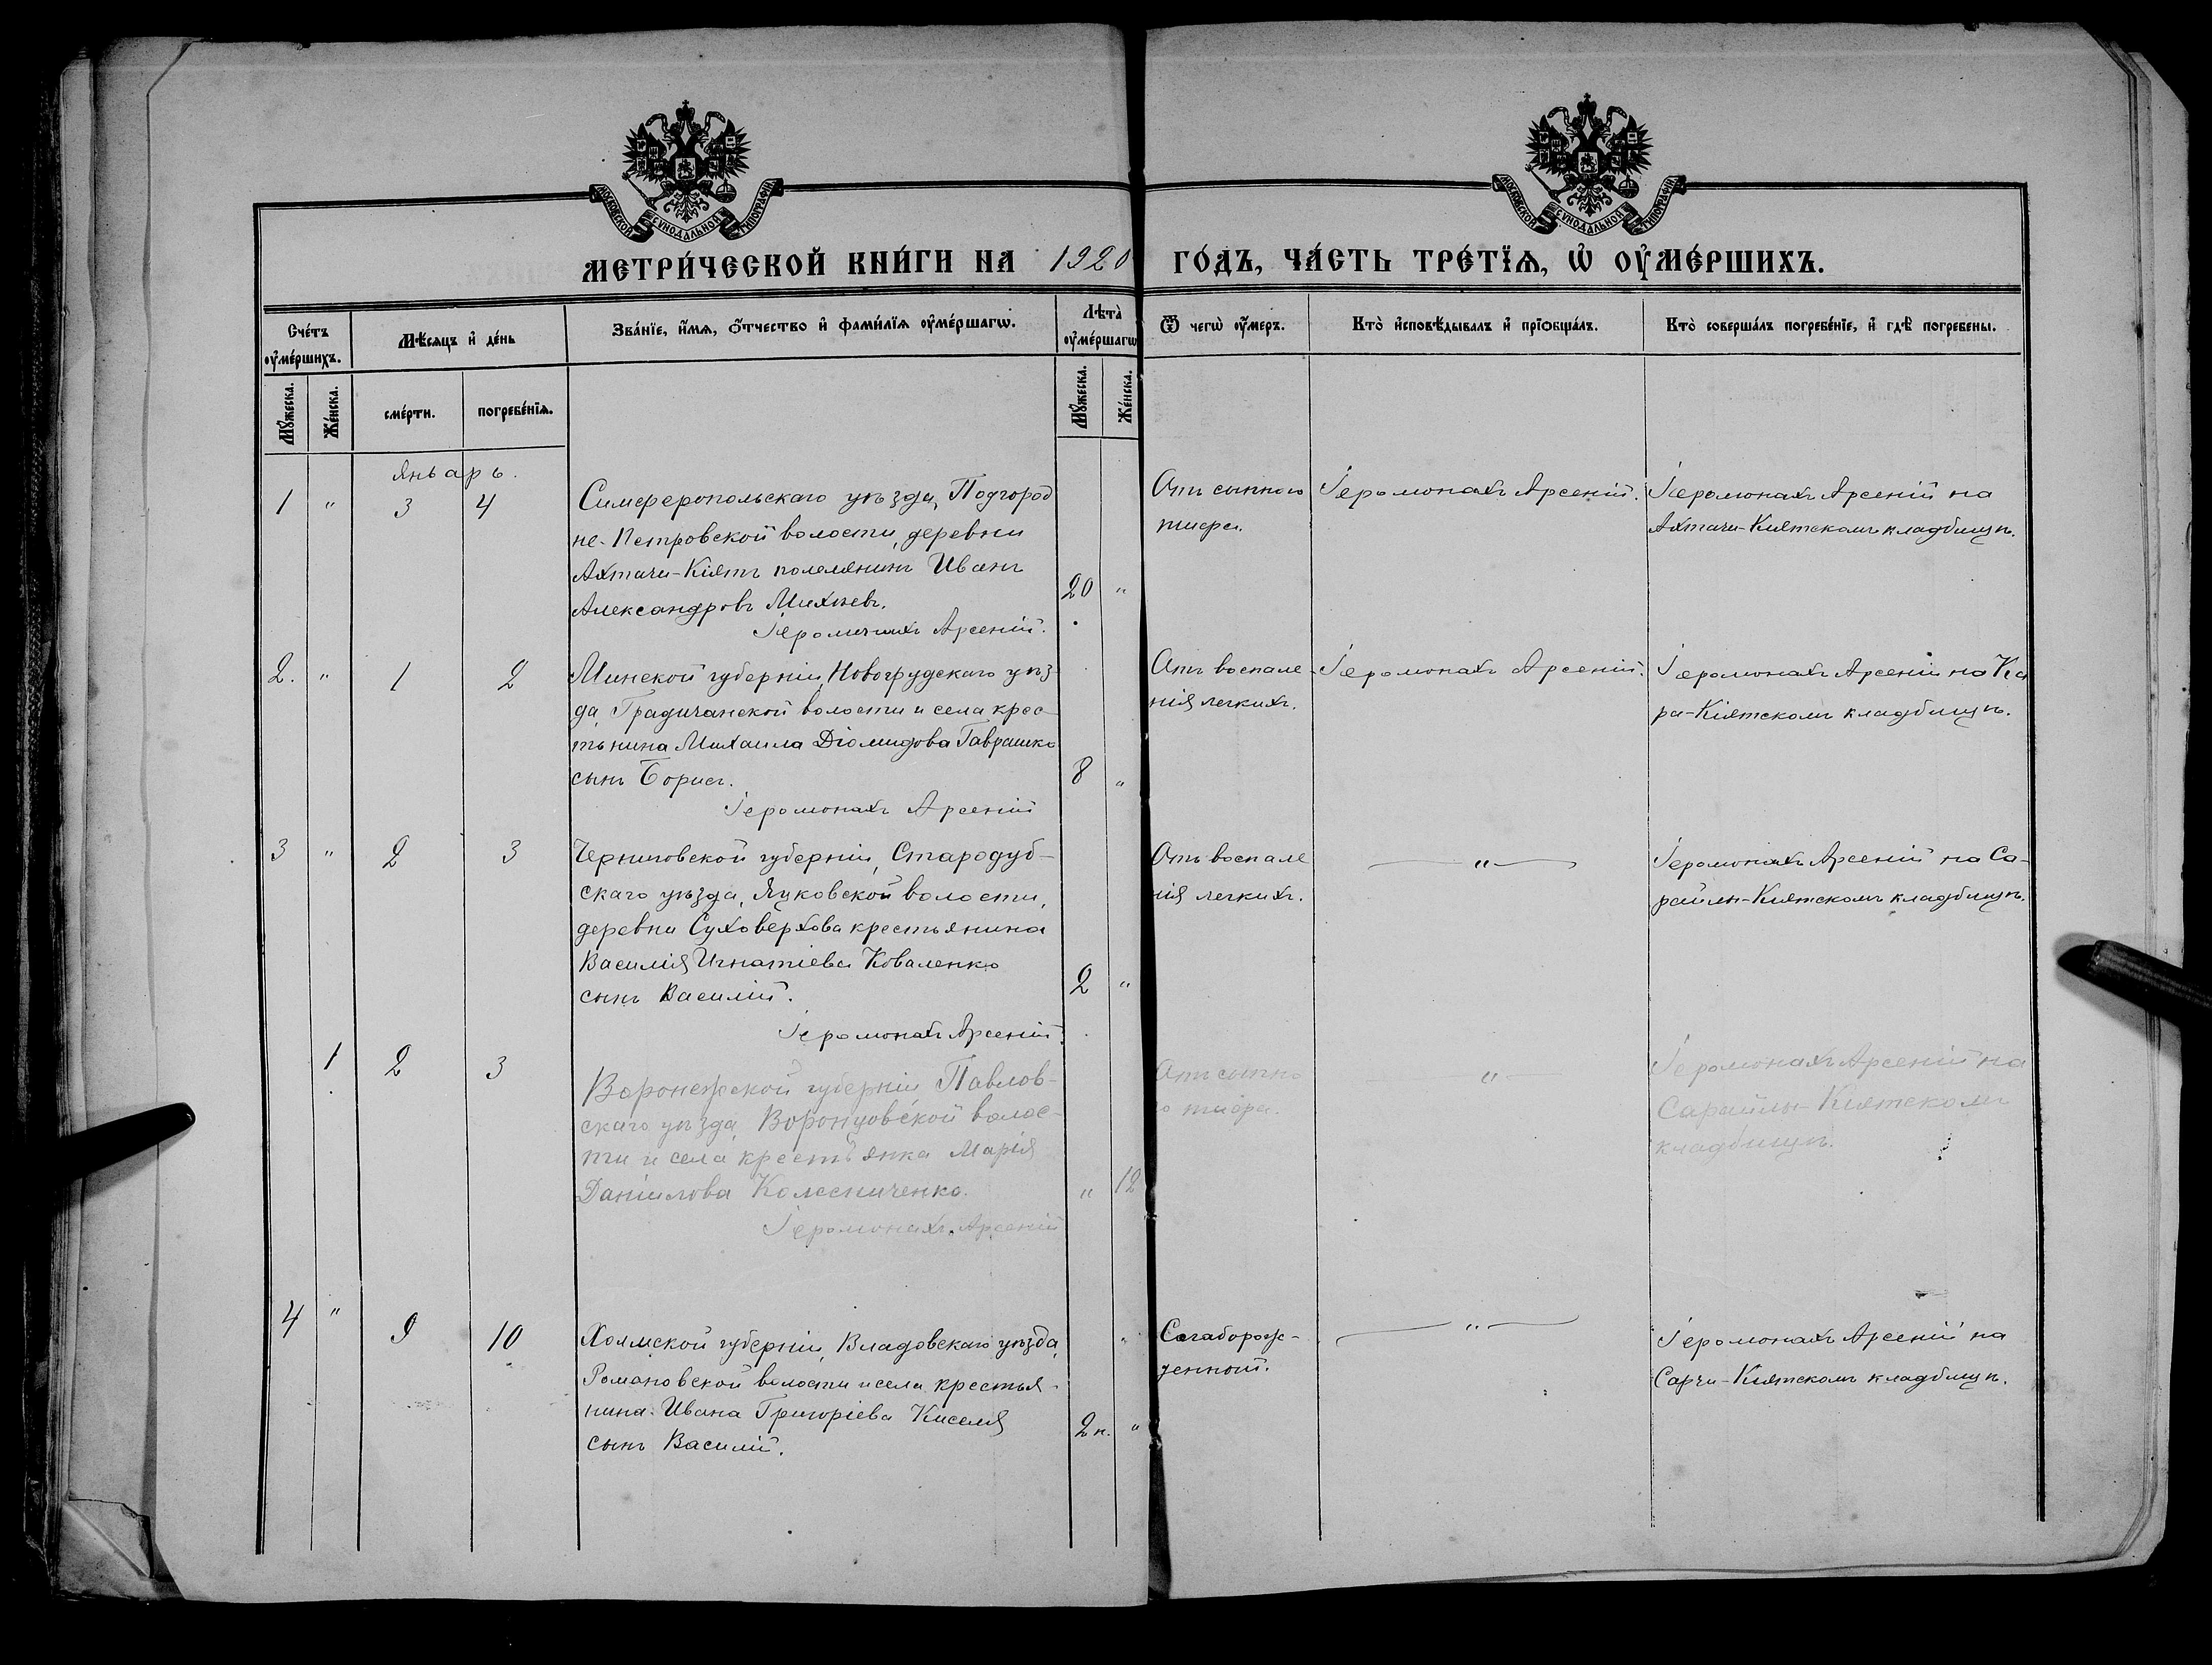 МОСКОВСКОЙ СУНОДАЛЬНОЙ ТИПОГРАФІИ
МОСКОВСКОЙ СУНОДАЛЬНОЙ ТИПОГРАФІИ
МЕТРИ́ЧЕСКОЙ КНИ́ГИ НА 1920 ГО́ДЪ, ЧА́СТЬ ТРЕ́ТЇѦ, Ѡ҆ ОУ҆МЕ́РШИХЪ.
Сче́тъ оу҆ме́ршихъ.
Мѣ́сяцъ и҆ де́нь
Зва́нїе, и҆́мѧ, ѻ҆́тчество и҆ фами́лїѧ оу҆ме́ршагѡ.
Лѣта̀ оу҆ме́ршагѡ
Ѿ чегѡ̀ оу҆́меръ.
Кто̀ и҆сповѣ́дывалъ и҆ прїѻбща́лъ.
Кто̀ соверша́лъ погребе́нїе, и҆ гдѣ̀ погребены.
Мꙋ́жеска.
Же́нска.
сме́рти.
погребе́нїѧ.
Мꙋ́жеска.
Же́нска.
Январь.
1 " 3 4
Симферопольскаго уѣзда, Подгород
не-Петровской волости, деревни
Ахтачи-Кіятъ поселянинъ Иванъ
Александровъ Михѣевъ.
Іеромонахъ Арсеній.
20 "
Отъ сыпного
тифа.
Іеромонахъ Арсеній.
Іеромонахъ Арсеній на
Ахтачи-Киятскомъ кладбищѣ.
2. " 1 2
Минской губерніи, Новогрудскаго уѣз-
да, Градичанской волости и села крес-
тьнина Михаила Діомидова Гаврашко
сынъ Борисъ.
Іеромонахъ Арсеній
8 "
Отъ воспале-
нія легкихъ.
Іеромонахъ Арсеній.
Іеромонахъ Арсеній на Ка
ра-Кіятскомъ кладбищѣ.
3 " 2 3
Черниговской губерніи, Стародуб-
скаго уѣзда, Луковской волости,
деревни Суховерхова крестьянина
Василія Игнатіева Коваленко
сынъ Василій.
Іеромонахъ Арсеній.
2 "
Отъ воспале
нія легкихъ.
"
Іеромонахъ Арсеній на Са-
райлы-Киятскомъ кладбищѣ.
1 2 3
Воронежской губерніи Павлов-
скаго уѣзда, Воронцовской волос-
ти и села крестьянка Марія
Даніилова Колесниченко.
Іеромонахъ Арсеній
" 12
Отъ сыпно
го тифа.
"
Іеромонахъ Арсеній на
Сарайлы-Киятскомъ
кладбищѣ.
4 " 9 10
Холмской губерніи, Владовскаго уѣзда,
Романовской волости и села, крестья-
нина Ивана Григоріева Киселя
сынъ Василій.
2 н. "
Слаборож-
денной.
"
Іеромонахъ Арсеній на
Сарчи-Киятскомъ кладбищѣ.